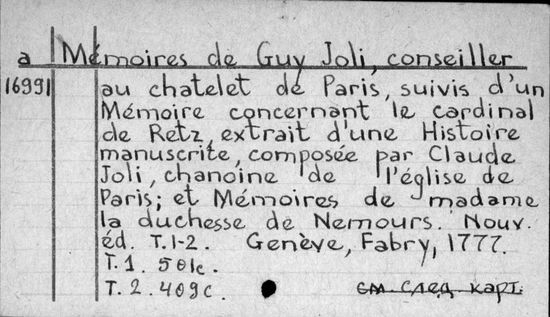 a Mémoires de Guy Joli, conseiller
16991 au chatelet de Paris, suivis d'un
Mémoire concernant le cardinal
de Retz, extrait d'une Histoire
manuscrite, composée par Claude
Joli, chanoine de l'église de
Paris; et Mémoires de madame
la duchesse de Nemours. Nouv.
éd. T.1-2. Genève, Fabry, 1777.
T.1. 501c.
T.2. 409c. см. след. карт.